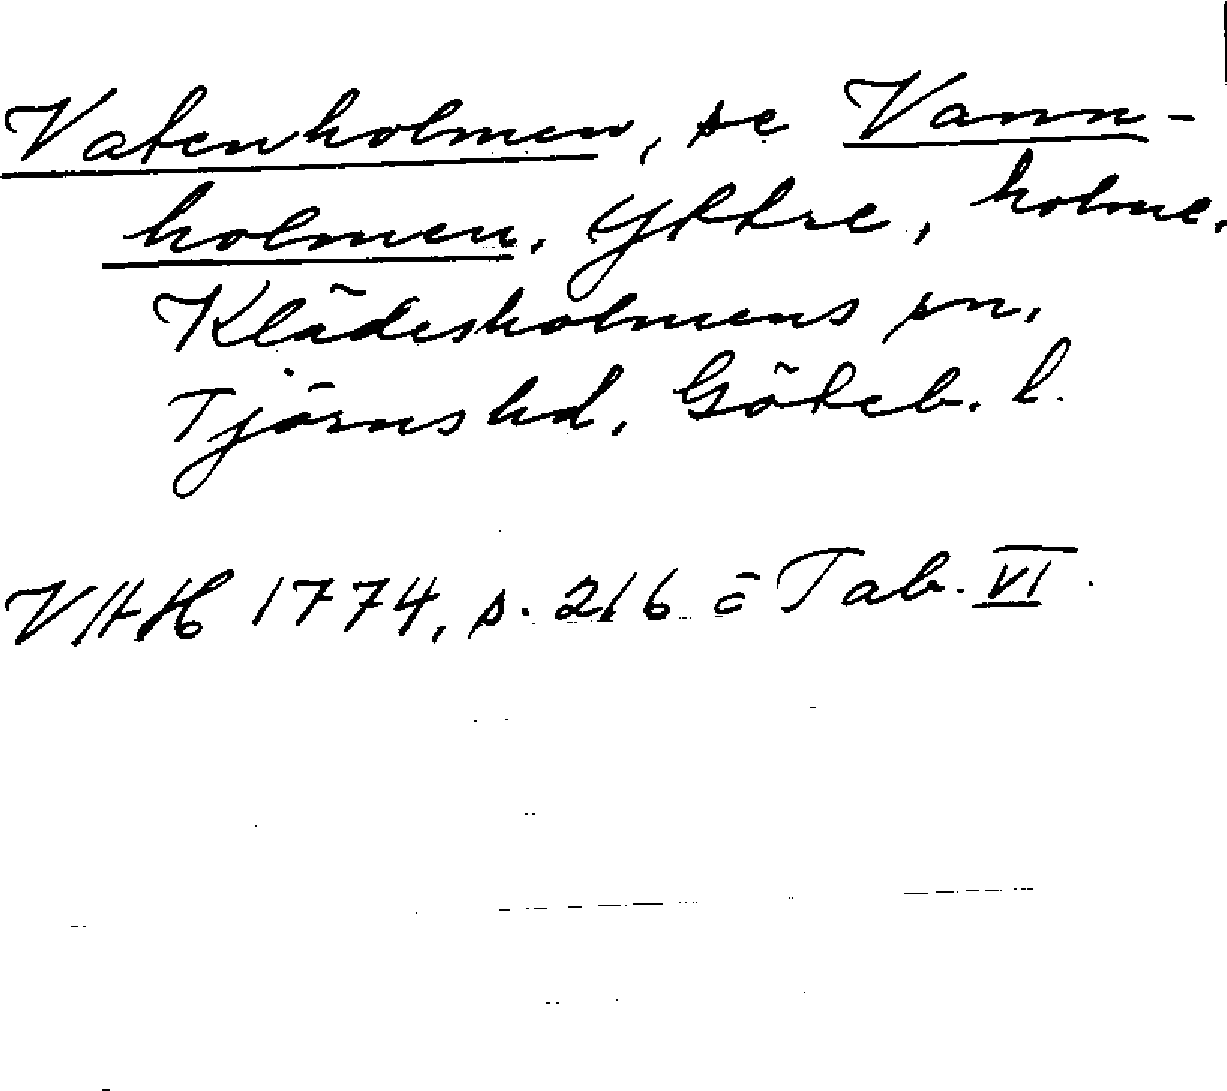 Vatenholmen, se Vann-
holmen. Yttre, holme.
Klädesholmens sn,
Tjörns hd, Göteb. l.
VHH 1774, s. 216 o Tab. VI.